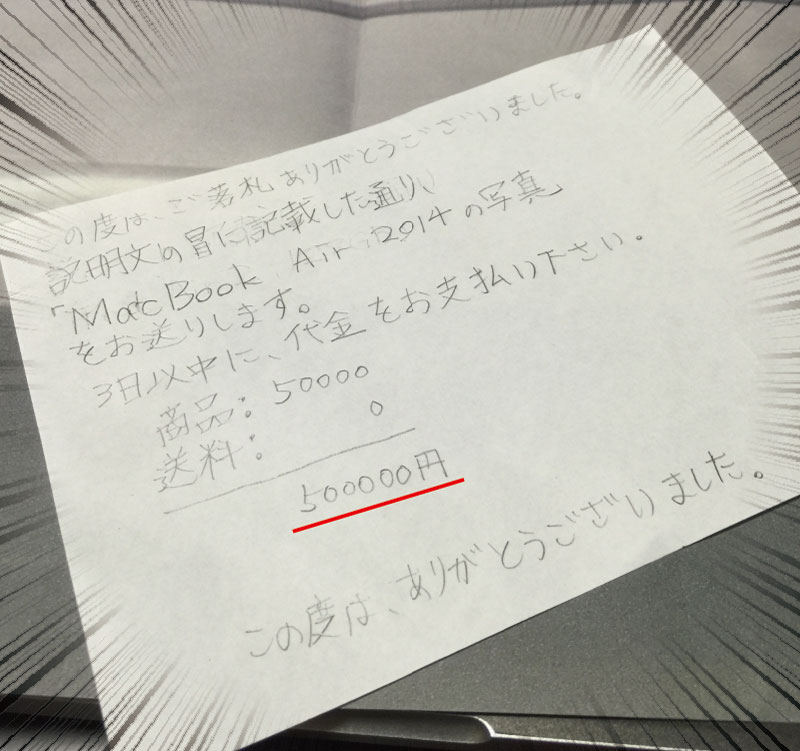 この度は、ご落札ありがとうございました。
説明文の冒に記載した通り、
「MacBook AIR 2014の写真
をお送りします。
3日以中に、代金をお支払い下さい。
商品：50000
送料： 0
500000円
この度は、ありがとうございました。